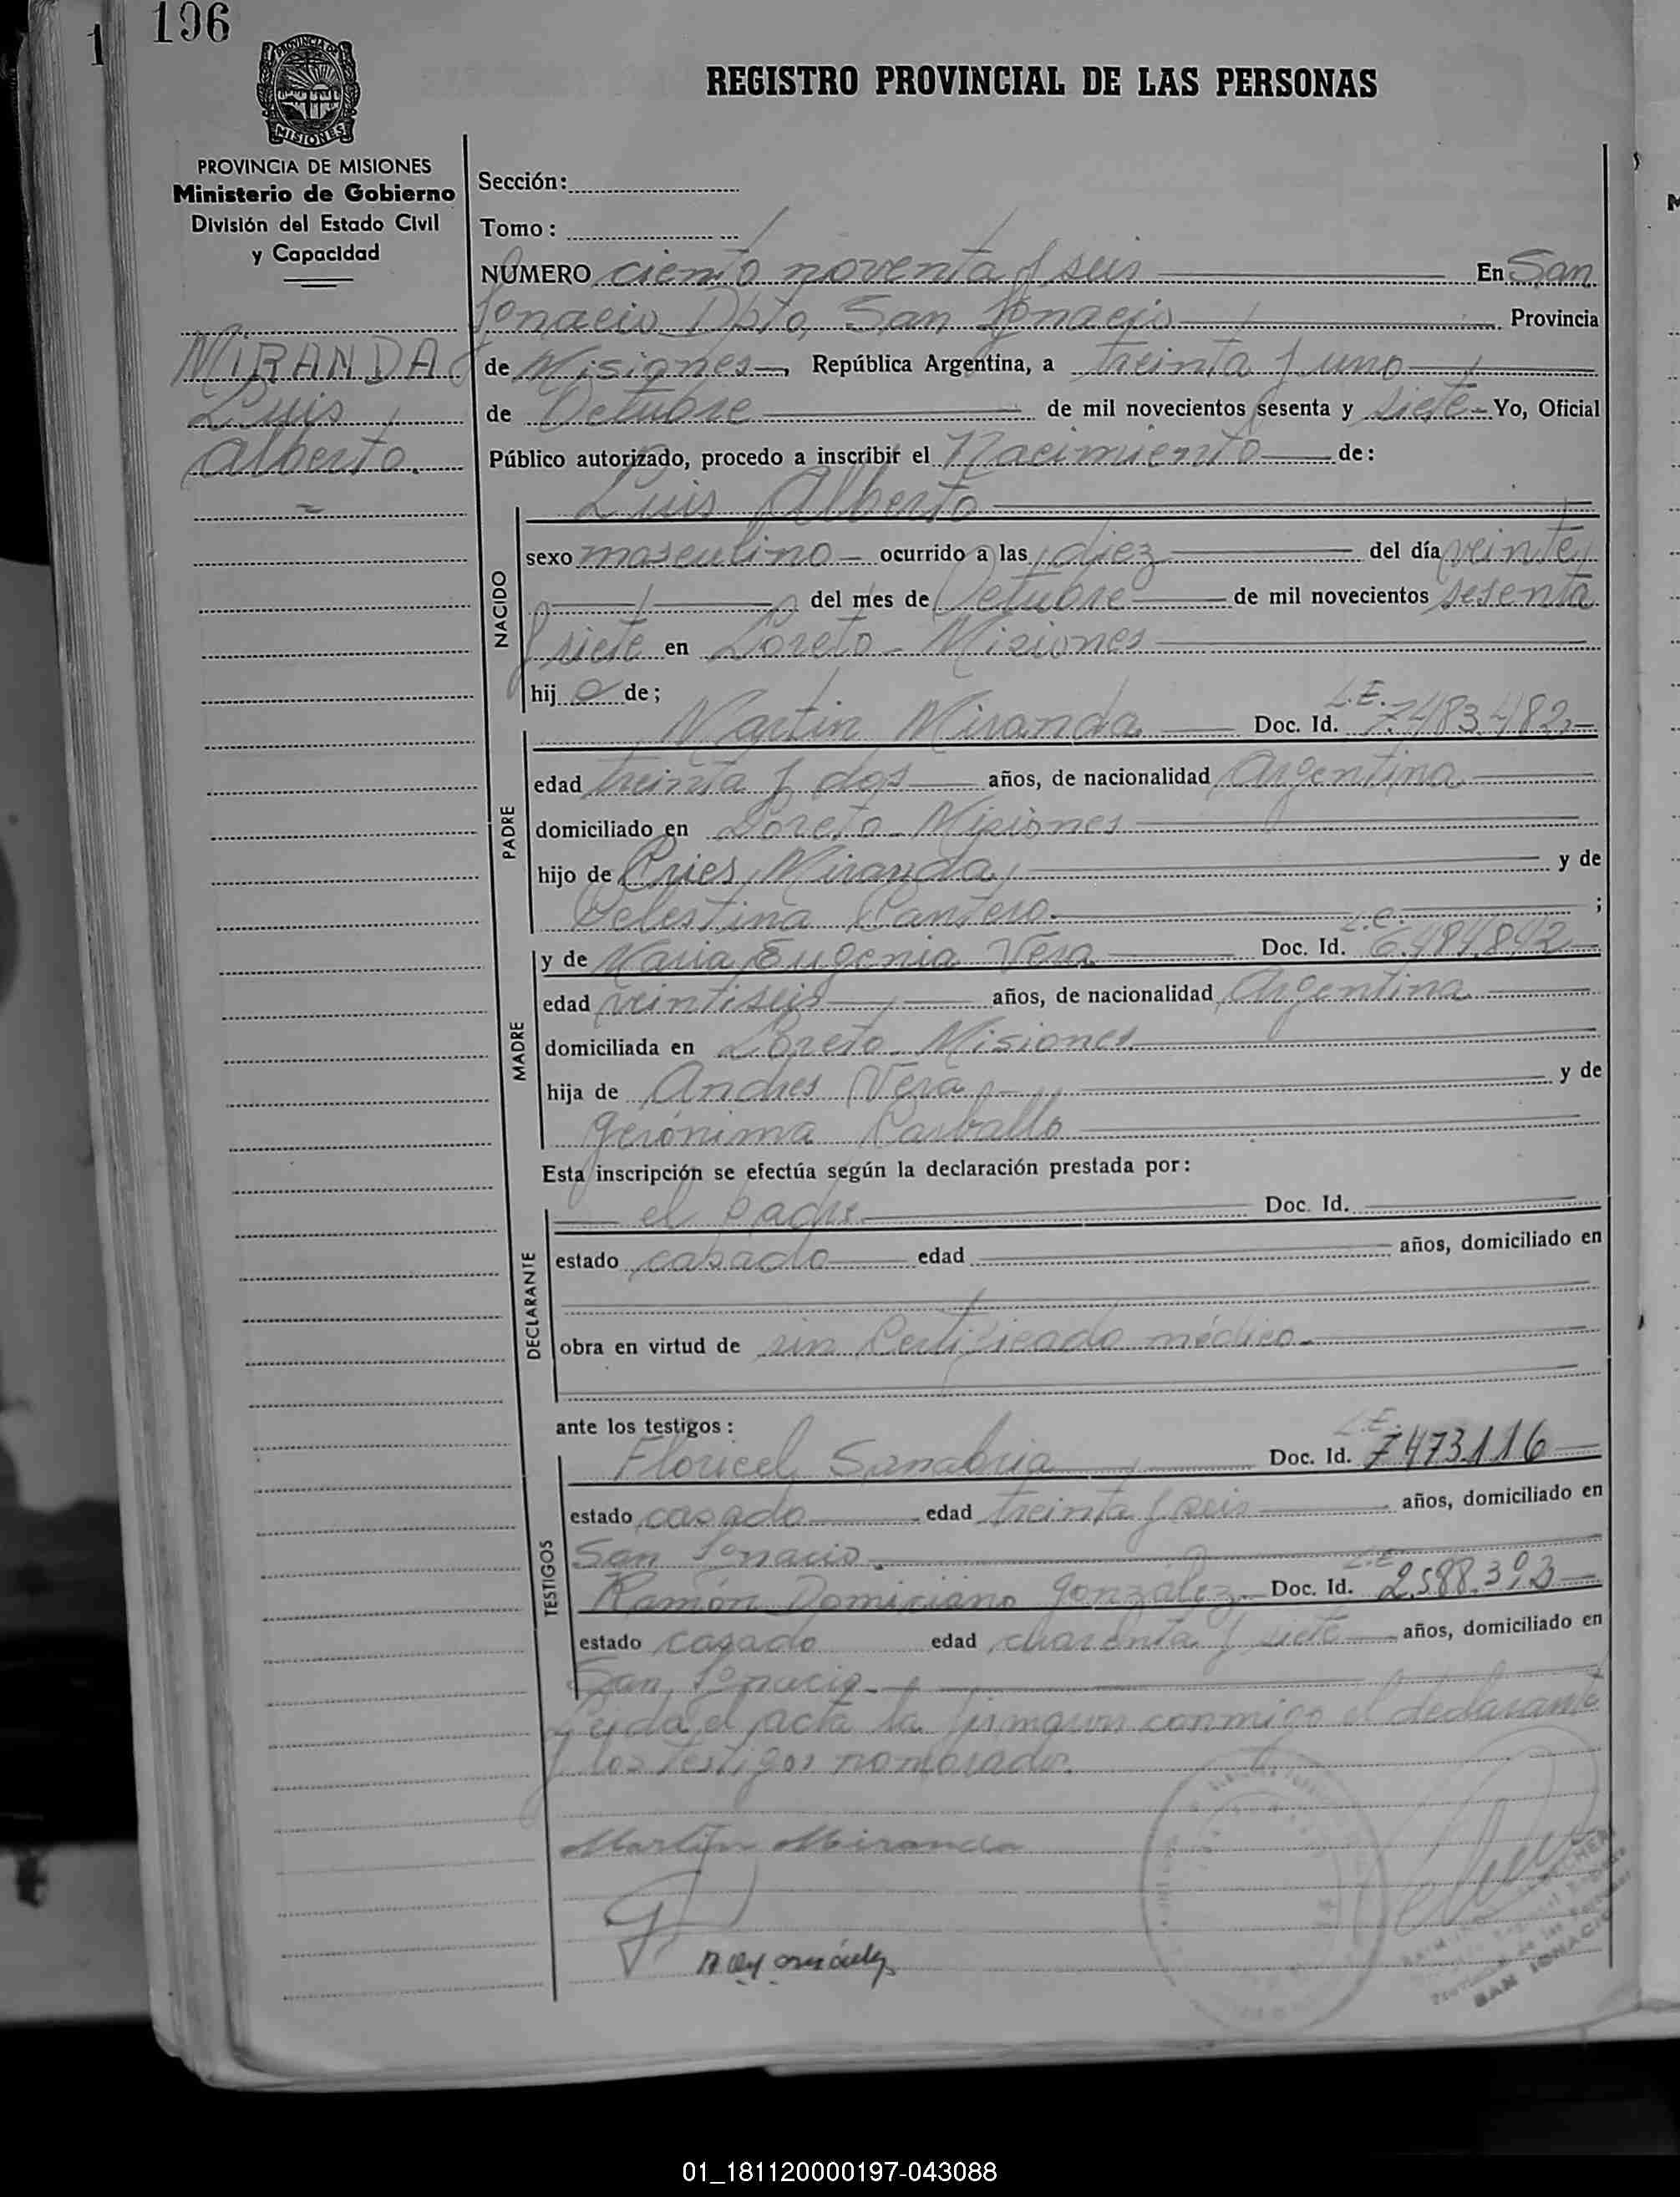 196
1
PROVINCIA DE
MISIONES
REGISTRO PROVINCIAL DE LAS PERSONAS
PROVINCIA DE MISIONES
Ministerio de Gobierno
División del Estado Civil
y Capacidad
MIRANDA
Luis
Alberto.
Sección:
Tomo:
NUMERO ciento noventa y seis En San
Ignacio Dpto, San Ignacio Provincia
de Misiones, República Argentina, a treinta y uno
de Octubre de mil novecientos sesenta y siete Yo, Oficial
Público autorizado, procedo a inscribir el Nacimiento de:
Luis Alberto
NACIDO
sexo masculino ocurrido a las diez del día veinte
del mes de Octubre de mil novecientos sesenta
y siete en Loreto - Misiones
hij o de;
PADRE
Martin Miranda Doc. Id. L.E. 7.483.482
edad treinta y dos años, de nacionalidad Argentina
domiciliado en Loreto - Misiones
hijo de Miranda y de
Celestina Cantero ;
MADRE
y de Maria Eugenia Vera Doc. Id. L.C.
edad veintiseis años, de nacionalidad Argentina
domiciliada en Loreto - Misiones
hija de Andres Vera y de
Gerónima Carballo
Esta inscripción se efectúa según la declaración prestada por:
DECLARANTE
el padre Doc. Id.
estado casado edad años, domiciliado en
obra en virtud de sin Certificado médico.
ante los testigos:
TESTIGOS
Floricel Sanabria Doc. Id. L.E. 7.473.116
estado casado edad treinta y seis años, domiciliado en
San Ignacio.
Ramón Domiciano González Doc. Id. L.E. 2.588.393
estado casado edad cuarenta y siete años, domiciliado en
San Ignacio.
Leida el acta la firmaron conmigo el declarante
y los testigos nombrados.
Martin Miranda
SAN IGNACIO
01_181120000197-043088